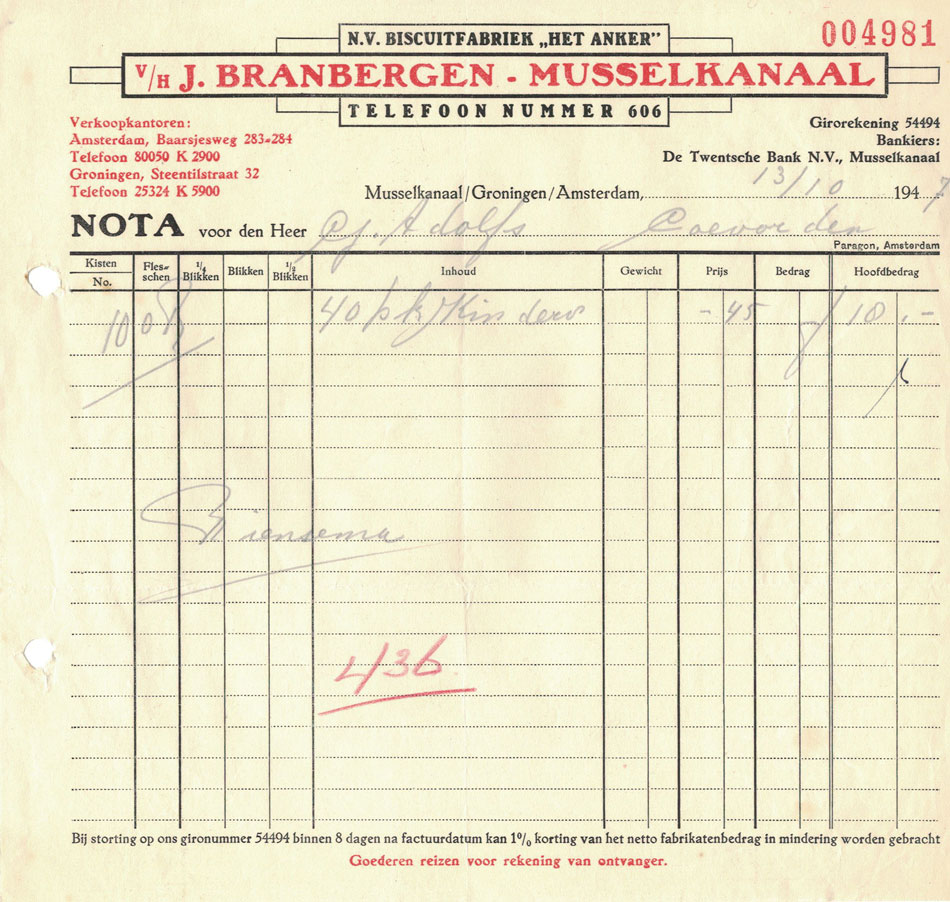 004981
N.V. BISCUITFABRIEK „HET ANKER”
V/H J. BRANBERGEN - MUSSELKANAAL
TELEFOON NUMMER 606
Verkoopkantoren:
Amsterdam, Baarsjesweg 283-284
Telefoon 80050 K 2900
Groningen, Steentilstraat 32
Telefoon 25324 K 5900
Girorekening 54494
Bankiers:
De Twentsche Bank N.V., Musselkanaal
Musselkanaal/Groningen/Amsterdam, 13/10 1947
NOTA voor den Heer Adolfs Coevorden
Paragon, Amsterdam
Kisten No. Fles-schen 1/4 Blikken Blikken 1/2 Blikken Inhoud Gewicht Prijs Bedrag Hoofdbedrag
40 pk Kinders - 45 10.-
Biensema
436
Bij storting op ons gironummer 54494 binnen 8 dagen na factuurdatum kan 1% korting van het netto fabrikatenbedrag in mindering worden gebracht
Goederen reizen voor rekening van ontvanger.